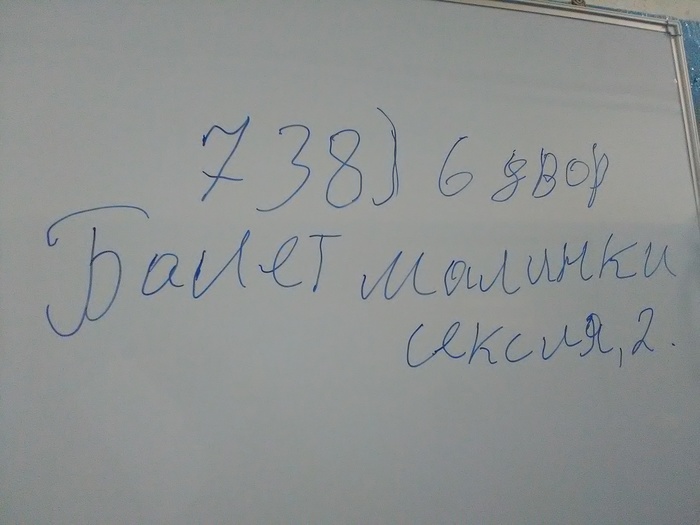 738) 6 двор
Балет малинки
сексия, 2.